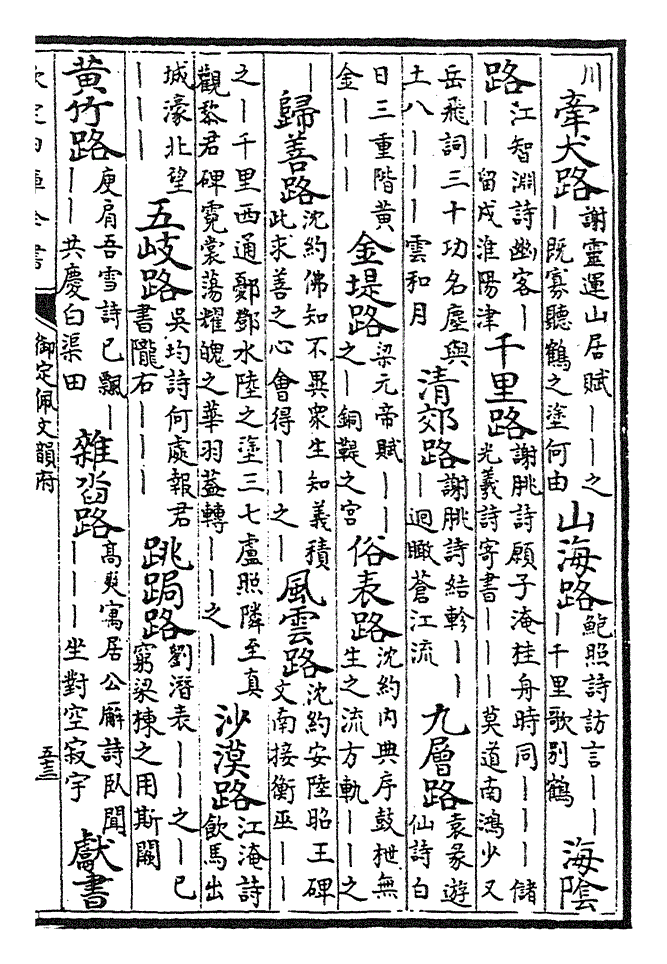 川
牽犬路
謝靈運山居賦｜｜之
｜既寡聽鶴之塗何由
山海路
鮑照詩訪言｜｜
｜千里歌别鶴
海陰
路
江智淵詩幽客｜
｜｜留戍淮陽津
千里路
謝朓詩願子淹桂舟時同｜｜｜儲
光羲詩寄書｜｜｜莫道南鴻少又
岳飛詞三十功名塵與
土八｜｜｜雲和月
清郊路
謝朓詩結軫｜｜
｜迥瞰蒼江流
九層路
袁彖遊
仙詩白
日三重階黄
金｜｜｜
金堤路
梁元帝賦｜｜
之｜銅鞮之宫
俗表路
沈約内典序鼓枻無
生之流方軌｜｜之
｜
歸善路
沈約佛知不異衆生知義積
此求善之心會得｜｜之｜
風雲路
沈約安陸昭王碑
文南接衡巫｜｜
之｜千里西通鄾鄧水陸之塗三七盧照隣至真
觀黎君碑霓裳蕩耀魄之華羽蓋轉｜｜之｜
沙漠路
江淹詩
飲馬出
城濠北望
｜｜｜
五岐路
吳均詩何處報君
書隴右｜｜｜
跳跼路
劉潛表｜｜之｜已
窮梁棟之用斯闕
黄竹路
庾肩吾雪詩已飄｜
｜｜共慶白渠田
雜沓路
高爽寓居公廨詩卧聞
｜｜｜坐對空寂宇
獻書
欽定四庫全書
御定佩文韻府
五三